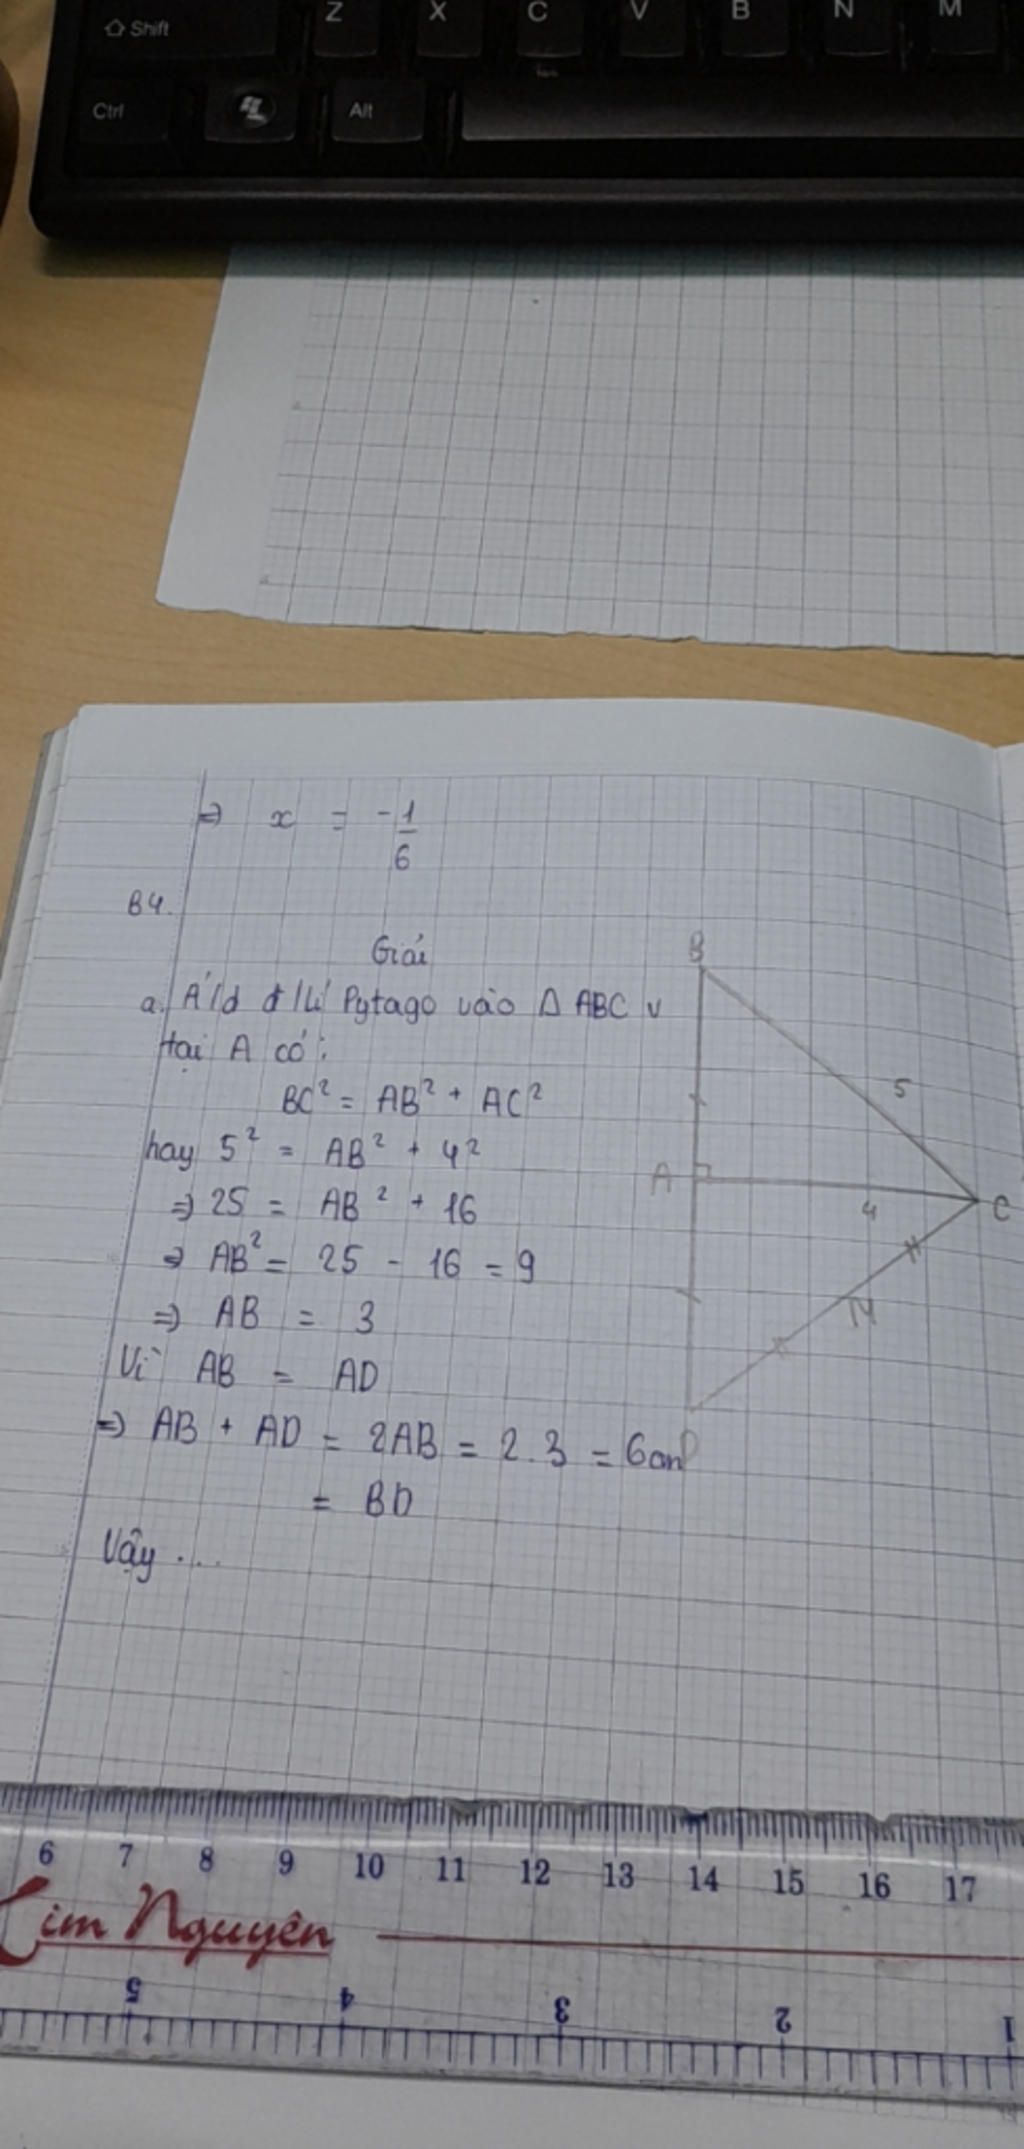 Z X C V B N M
Shift
Ctrl Alt
=> x = -1/6
B4.
Giải
a. A'/d đ/lí Pytago vào Δ ABC v
tại A có:
BC² = AB² + AC²
hay 5² = AB² + 4²
=> 25 = AB² + 16
=> AB² = 25 - 16 = 9
=> AB = 3
Vì AB = AD
=> AB + AD = 2AB = 2.3 = 6cm
= BD
Vậy ....
B
5
A
4
C
N
D
6 7 8 9 10 11 12 13 14 15 16 17
Kim Nguyên
5 4 3 2 1